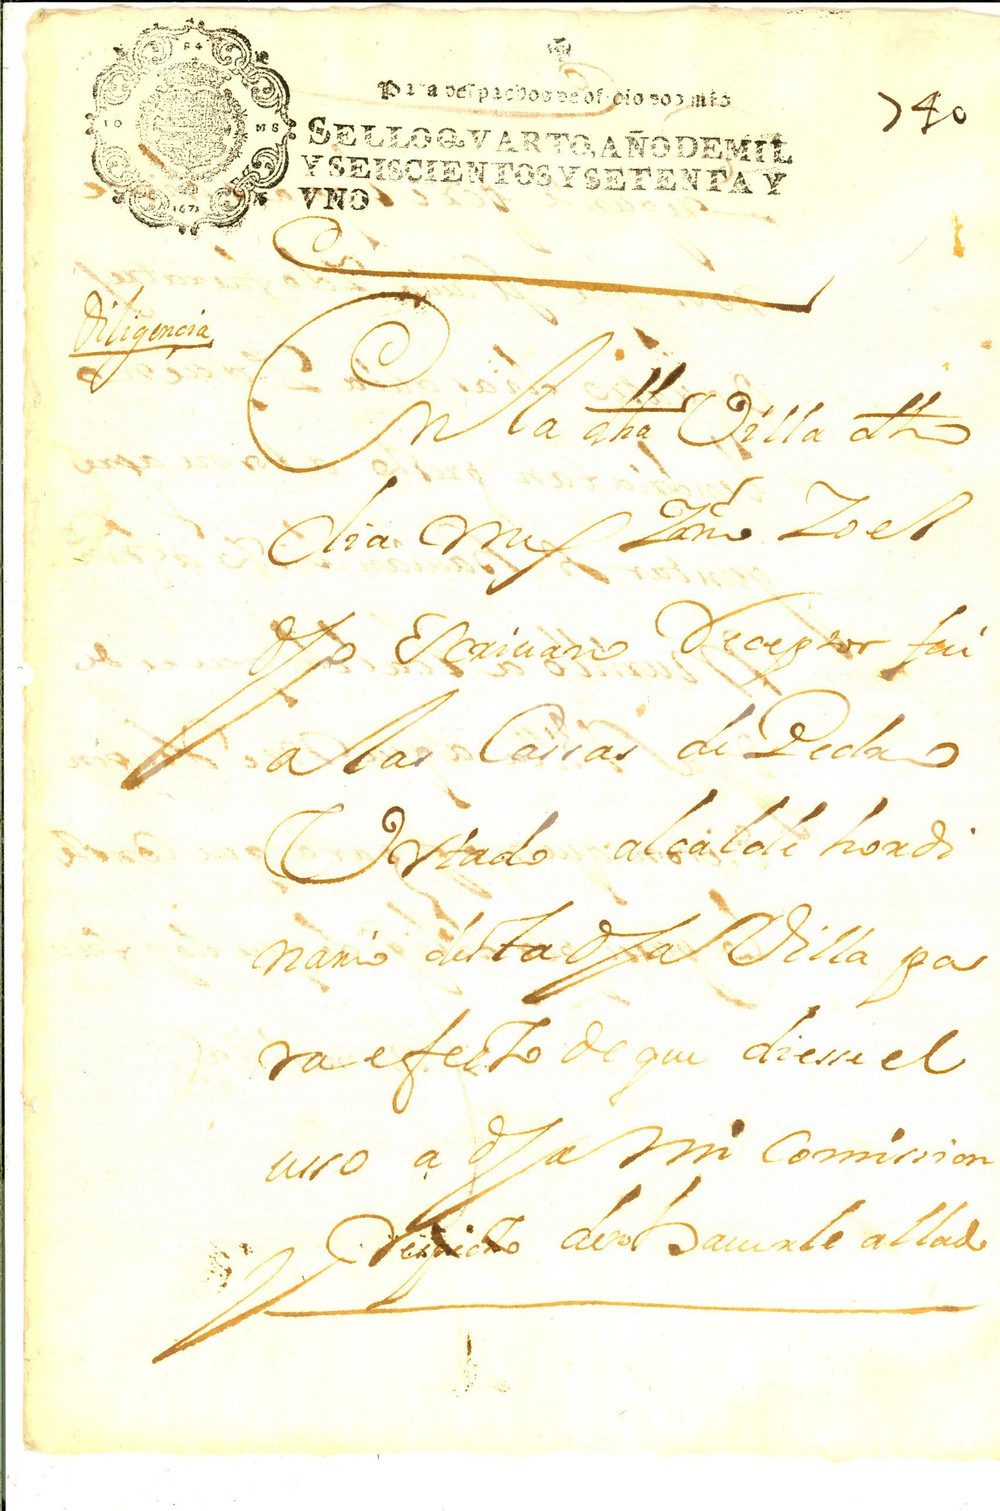 Para despachos de oficio dos mrs
740
SELLO QVARTO, AÑO DE MIL
Y SEISCIENTOS Y SETENTA Y
VNO
1671
diligencia
En la dha Villa dho
dia mes
Yo Escriuano Receptor fui
a las Cassas de Pedro
Ortado alcalde hordi
nario desta dha Villa pa
ra efecto de que diesse el
usso a dha mi Comission
Respecto de no hauerle allado